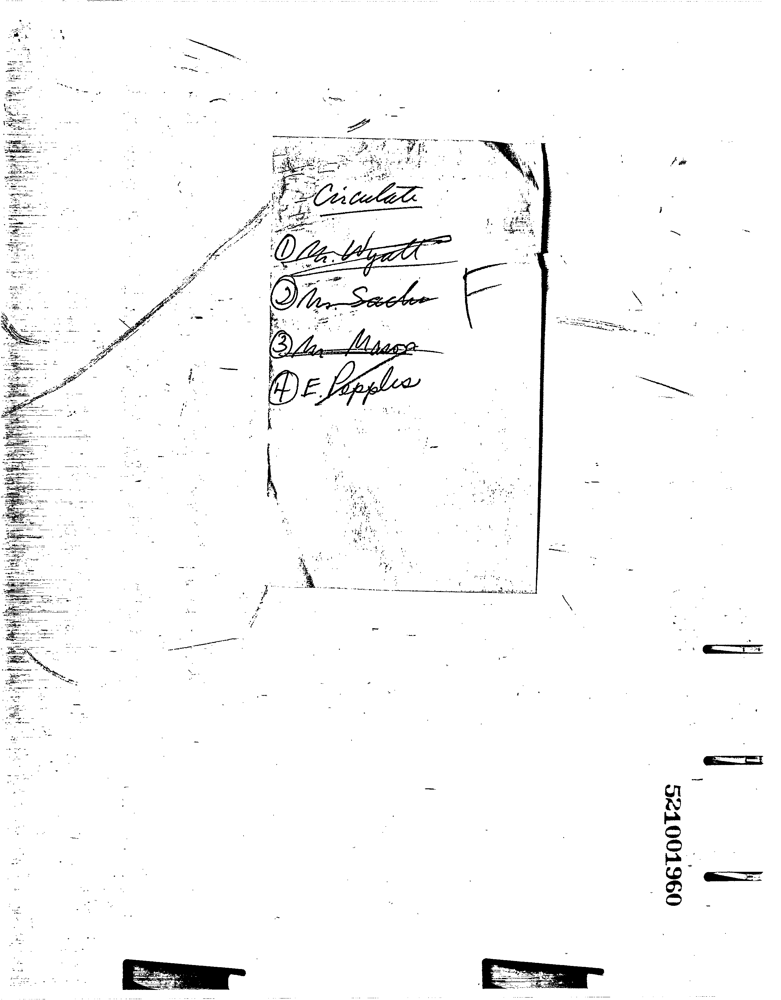 Circulate
① Mr. Wyatt
② Mr. Sachs
F
③ Mr Mason
④ E. Pepples
521001960